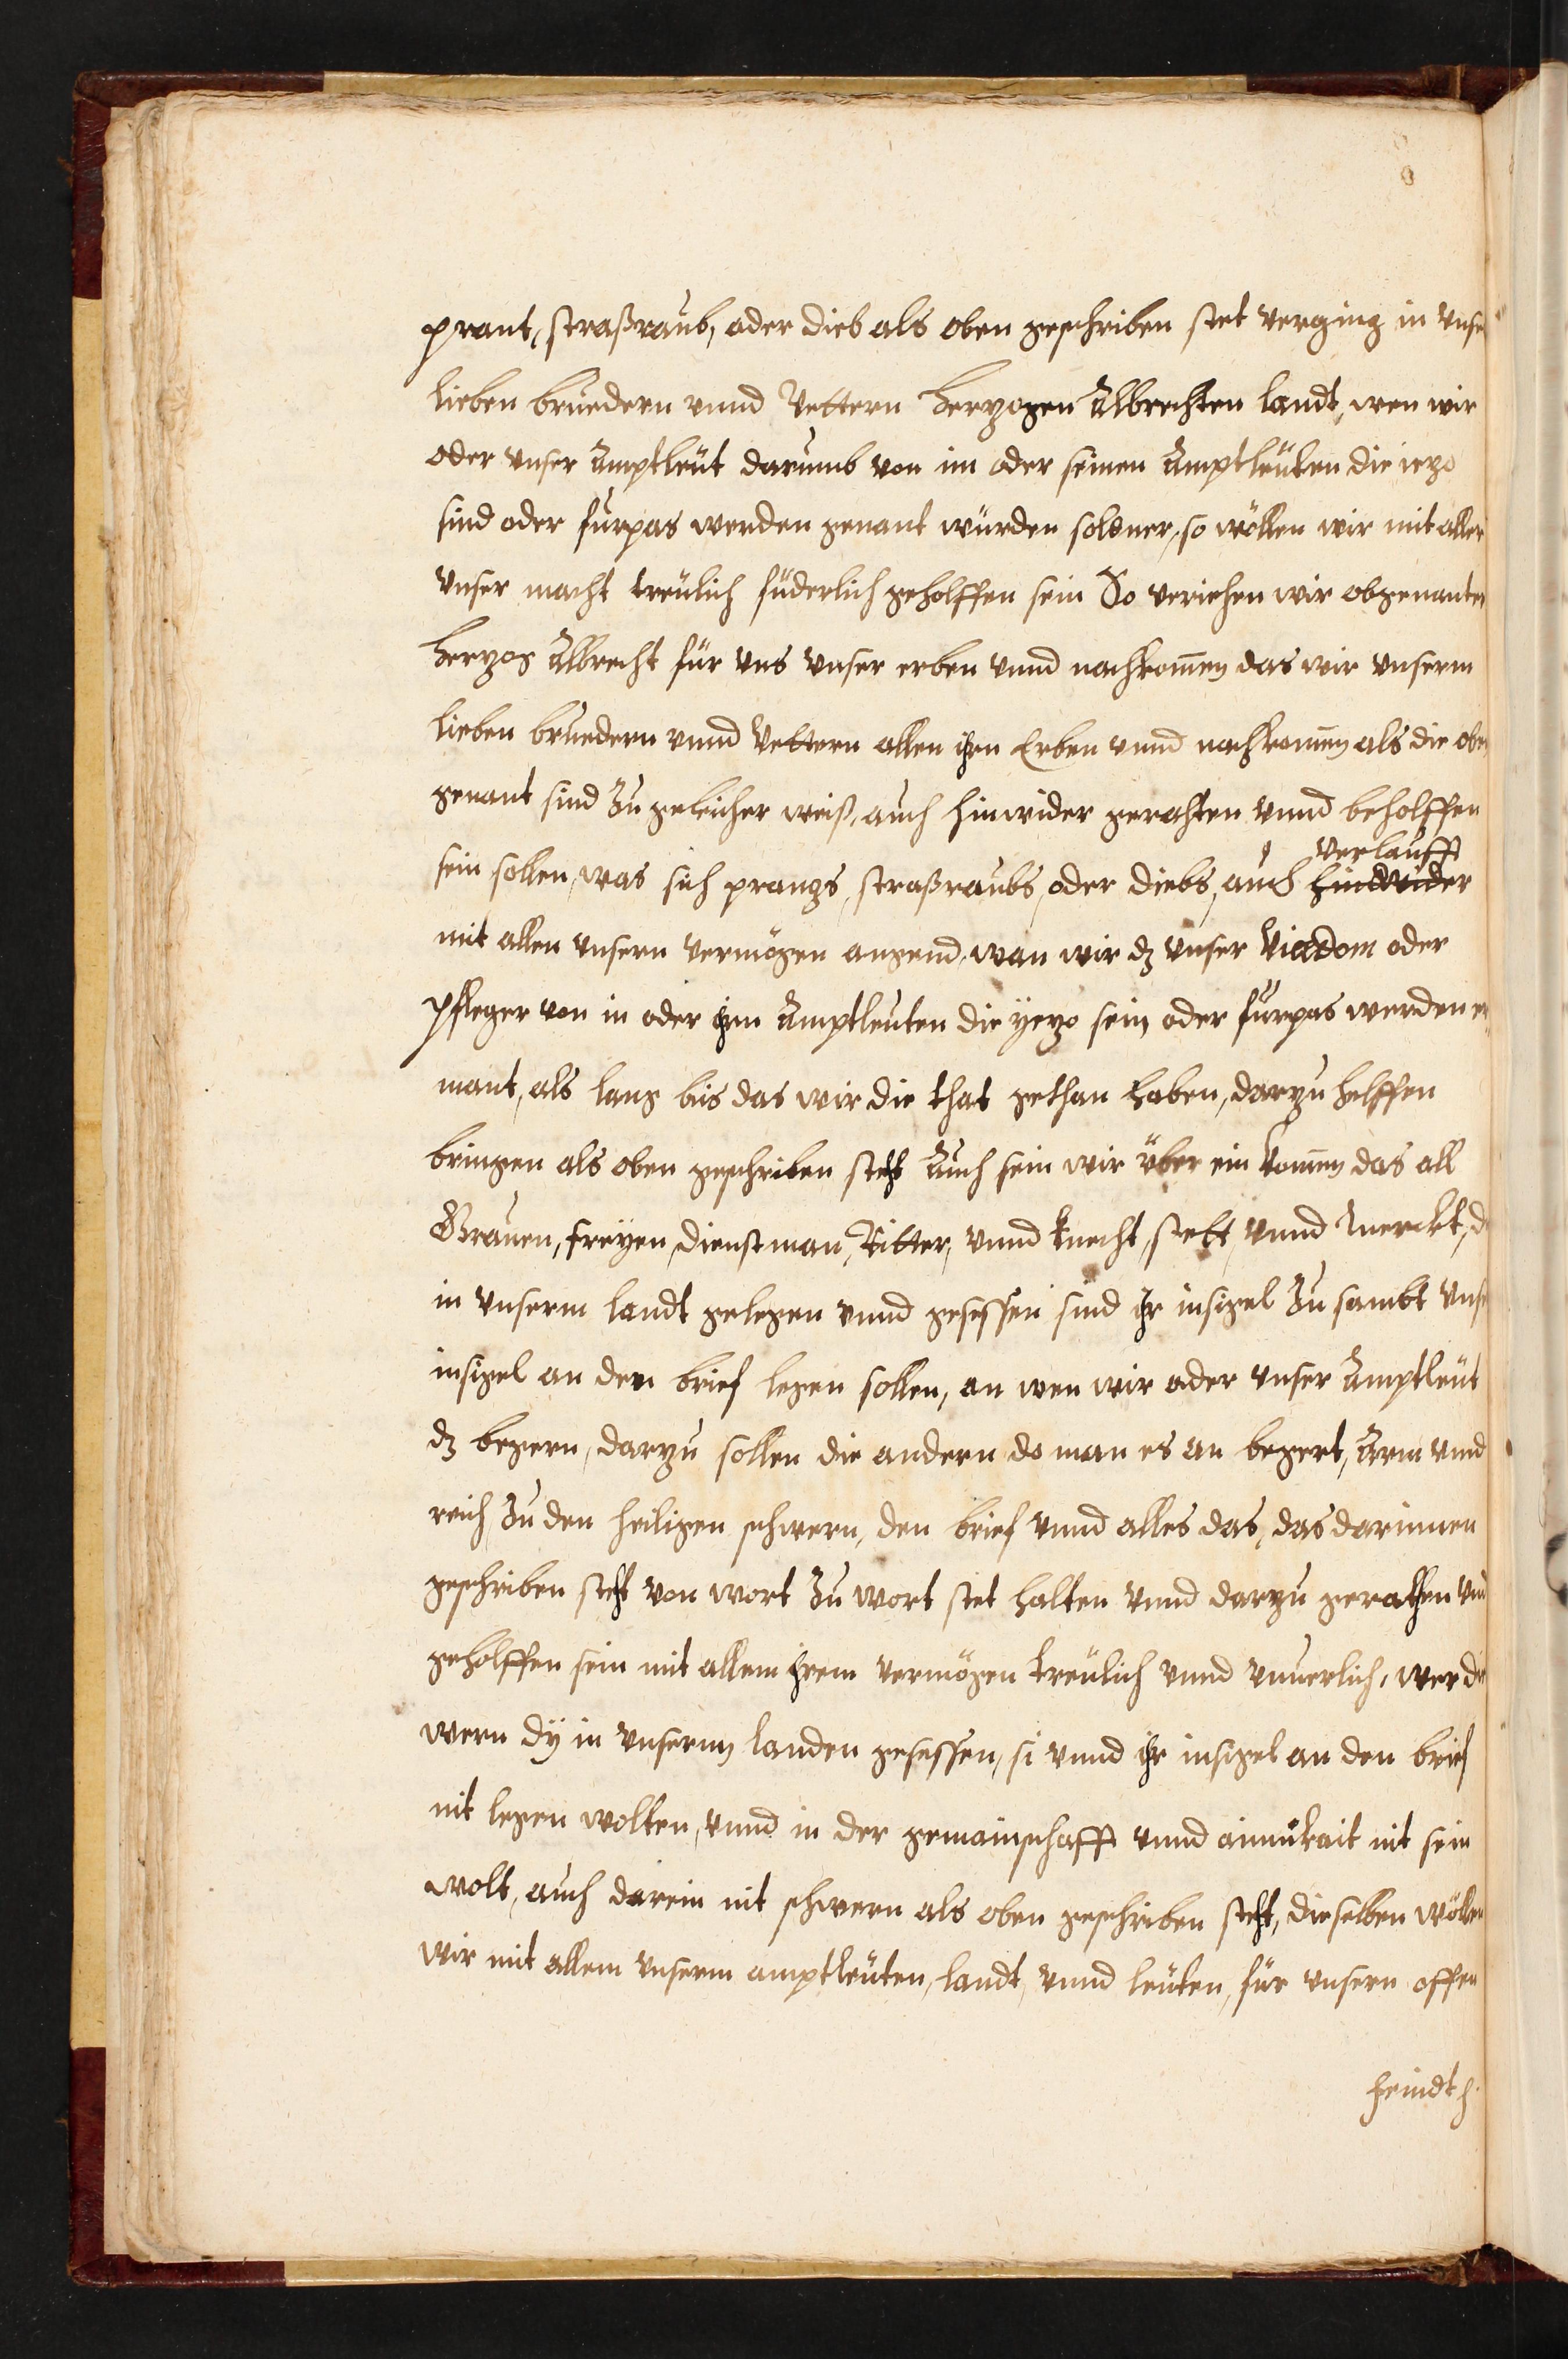 prant, straßraub, oder dieb als oben geschriben stet verging in vnse
lieben bruedern vnnd Vettern Herzogen Albrechten landt, wen wir
oder vnser Amptleüt darumb von im oder seinen Amptleüten die iezo
sind oder fürpas werden genant würden soldner, so wöllen wir mit aller
vnser macht treülich füderlich geholffen sein So veriehen wir obgenanter
Herzog Albrecht für vns vnser erben vnnd nachkom̄en das wir vnserm
lieben bruedern vnnd Vettern allen ihren Erben vnnd nachkom̄en als die oben
genant sind zu geleicher weiß, auch hinwider gerahten vnnd beholffen
verlaufft
sein sollen, was sich prangs, straßraubs, oder diebs, auch hindwider
mit allen vnsern vermögen angend, wan wir dz vnser Vizdom oder
Pfleger von in oder ihren Amptleuten die yezo sein oder fürpas werden er
mant, als lang bis das wir die that gethan haben, darzu helffen
bringen als oben geschriben steht Auch sein wir über ein kom̄en das all
Grauen, freyen, dienstman, Ritter, vnnd knecht, stett, vnnd Merckt, d
in vnserm landt gelegen vnnd gesessen sind ihr insigel zu sambt vnse
insigel an den brief legen sollen, an wen wir oder vnser Amptleüt
dz begern, darzu sollen die andern do man es an begert, Arm vnnd
reich zu den heiligen schwern, den brief vnnd alles das, das darinnen
geschriben steht von wort zu wort stet halten vnnd darzu gerathen vnd
geholffen sein mit allem ihrem vermögen treülich vnnd vnuerlich, wer die
wern dy in vnserm landen gesessen, si vnnd ihr insigel an den brief
nit legen wolten, vnnd in der gemainschafft vnnd ainmükait nit sein
wolt, auch darein nit schwern als oben geschriben steht, dieselben wöllen
wir mit allem vnserm amptleüten, landt, vnnd leüten, für vnsern offen
feindt